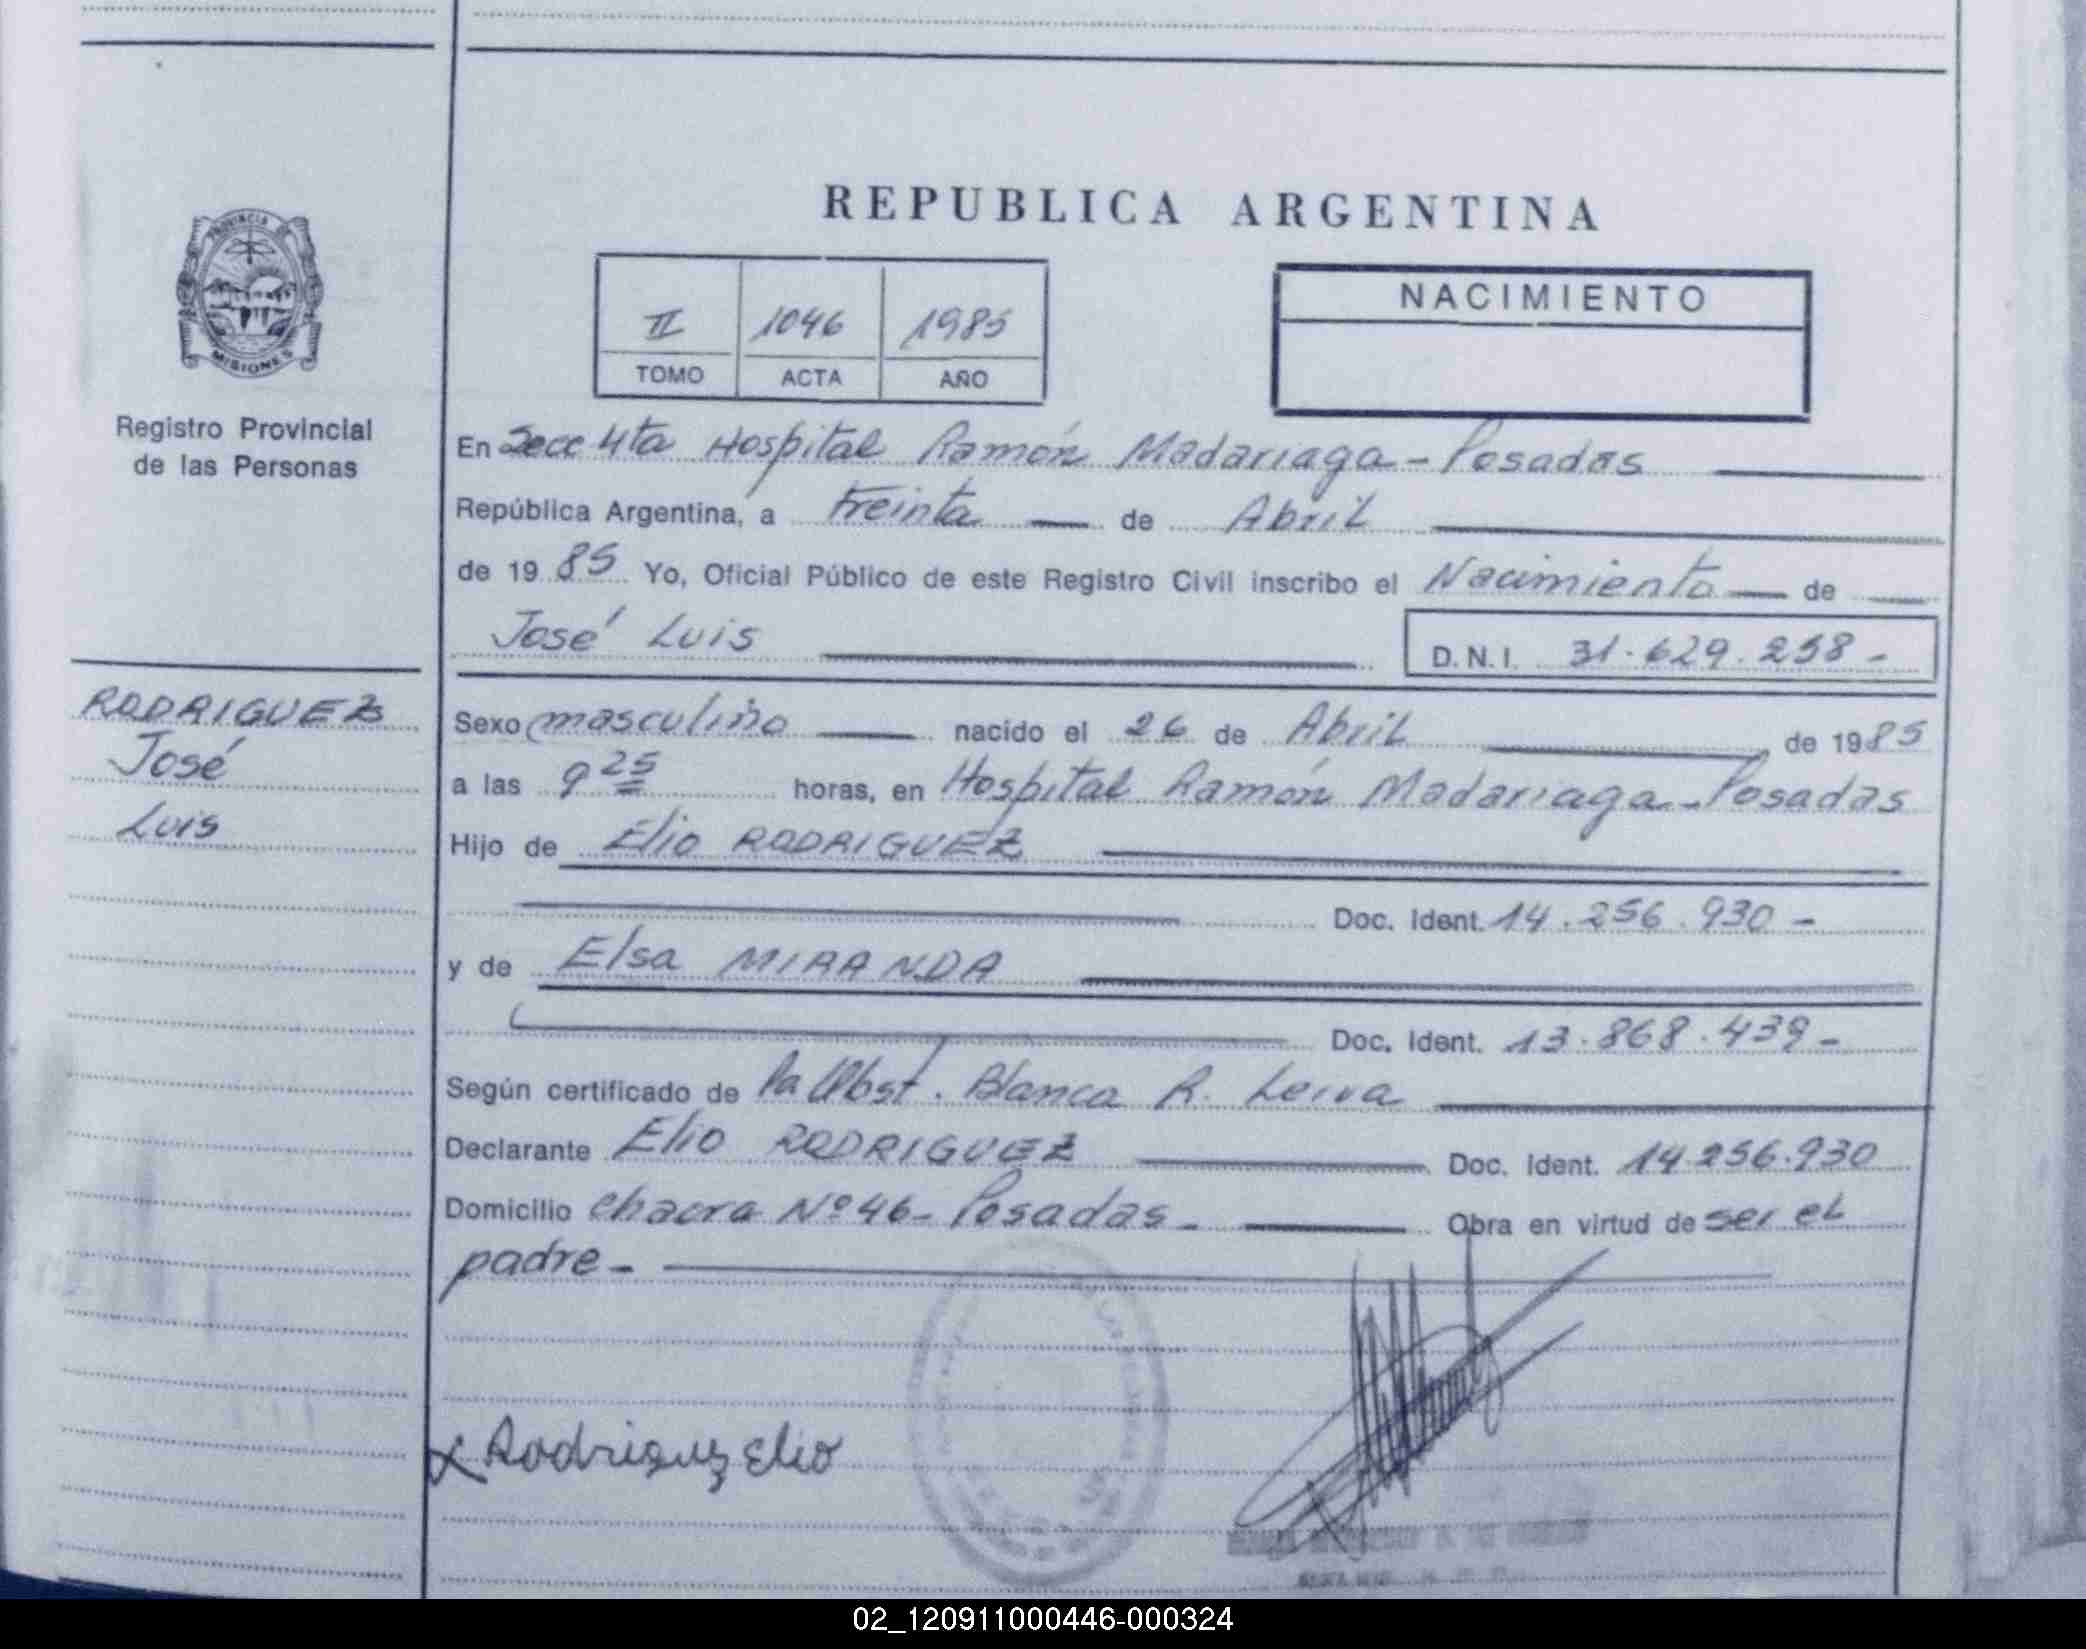 PROVINCIA DE
MISIONES
Registro Provincial
de las Personas
RODRIGUEZ
José
Luis
REPUBLICA ARGENTINA
II 1046 1985
TOMO ACTA AÑO
NACIMIENTO
En Secc 4ta Hospital Ramón Madariaga - Posadas
República Argentina, a treinta de Abril
de 1985 Yo, Oficial Público de este Registro Civil inscribo el Nacimiento de
José Luis D.N.I. 31.629.258-
Sexo masculino nacido el 26 de Abril de 1985
a las 9 25 horas, en Hospital Ramón Madariaga - Posadas
Hijo de Elio RODRIGUEZ
Doc. Ident. 14.256.930-
y de Elsa MIRANDA
Doc. Ident. 13.868.439-
Según certificado de la Obst. Blanca R. Leiva
Declarante Elio RODRIGUEZ Doc. Ident. 14.256.930
Domicilio chacra Nº 46- Posadas- Obra en virtud de ser el
padre-
x Rodriguez Elio
02_120911000446-000324